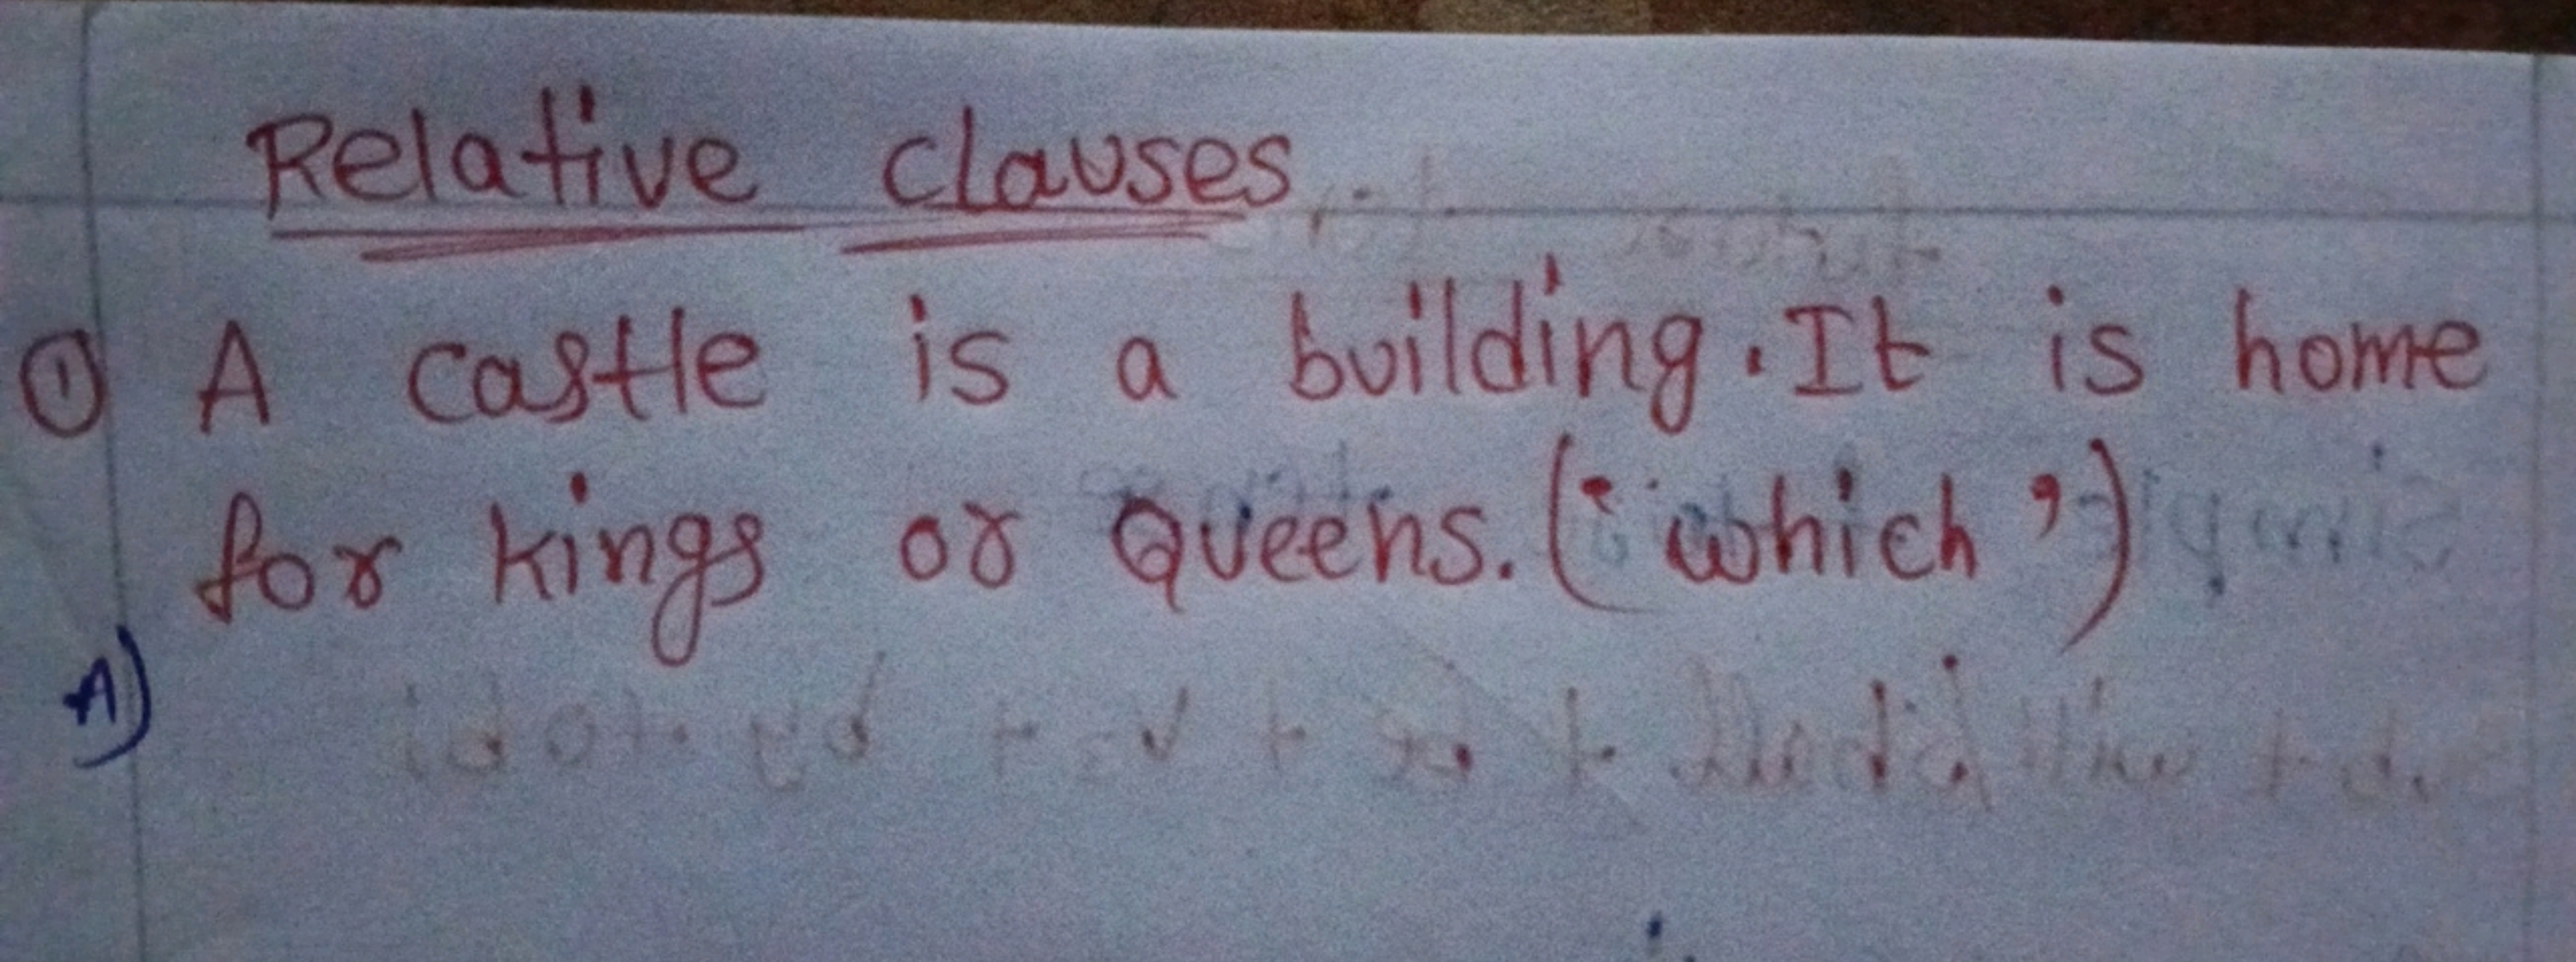 Relative clauses
① A castle is a building. It is home
for kings or Queens. ('which')
A)